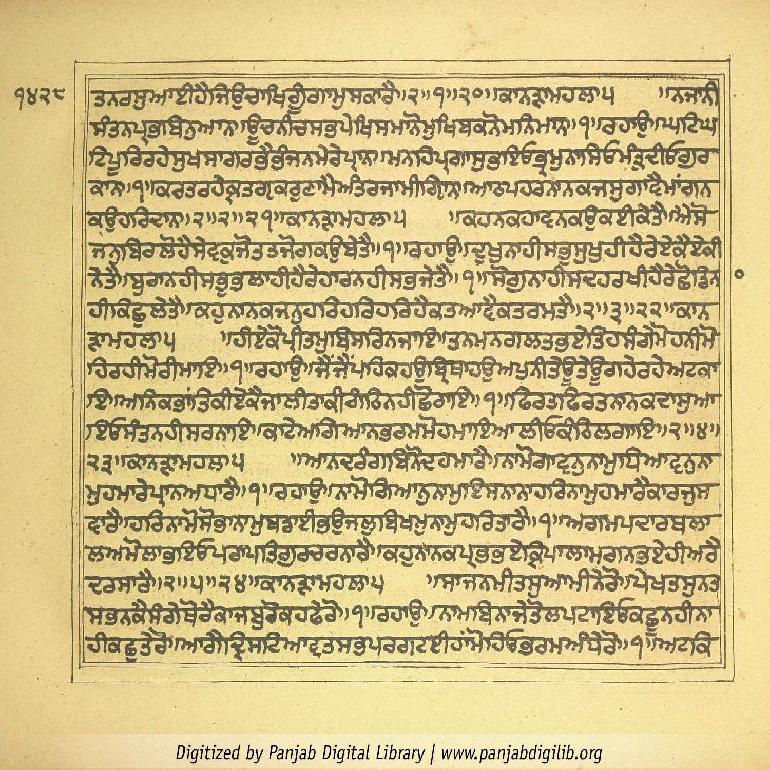 ੧੪੨੮
ਤਨਰਸੁਆਈਹੈਜਿਉਚਾਖਿਗੂੰਗਾਮੁਸਕਾਰੈ॥੨॥੧॥੨੦॥ਕਾਨੜਾਮਹਲਾ੫ ॥ਨਜਾਨੀ
ਸੰਤਨਪ੍ਰਭਬਿਨੁਆਨ॥ਊਚਨੀਚਸਭਪੇਖਿਸਮਾਨੋਮੁਖਿਬਕਨੋਮਨਿਮਾਨ॥੧॥ਰਹਾਉ॥ਘਟਿਘ
ਟਿਪੂਰਿਰਹੇਸੁਖਸਾਗਰਭੈਭੰਜਨਮੇਰੇਪ੍ਰਾਨ॥ਮਨਹਿਪ੍ਰਗਾਸੁਭਇਓਭ੍ਰਮੁਨਾਸਿਓਮੰਤ੍ਰੁਦੀਓਗੁਰ
ਕਾਨ॥੧॥ਕਰਤਰਹੇਕ੍ਰਤਗ੍ਯਕਰੁਣਾਮੈਅੰਤਰਜਾਮੀਗ੍ਯਿਾਨ॥ਆਠਪਹਰਨਾਨਕਜਸੁਗਾਵੈਮਾਂਗਨ
ਕਉਹਰਿਦਾਨ॥੨॥੨॥੨੧॥ਕਾਨੜਾਮਹਲਾ੫ ॥ਕਹਨਕਹਾਵਨਕਉਕਈਕੇਤੈ॥ਐਸੋ
ਜਨੁਬਿਰਲੋਹੈਸੇਵਕੁਜੋਤਤਜੋਗਕਉਬੇਤੈ॥੧॥ਰਹਾਉ॥ਦੁਖੁਨਾਹੀਸਭੁਸੁਖੁਹੀਹੈਰੇਏਕੈਏਕੀ
ਨੇਤੈ॥ਬੁਰਾਨਹੀਸਭੁਭਲਾਹੀਹੈਰੇਹਾਰਨਹੀਸਭਜੇਤੈ॥੧॥ਸੋਗੁਨਾਹੀਸਦਹਰਖੀਹੈਰੇਛੋਡਿਨ
ਹੀਕਿਛੁਲੇਤੈ॥ਕਹੁਨਾਨਕਜਨੁਹਰਿਹਰਿਹਰਿਹੈਕਤਆਵੈਕਤਰਮਤੈ॥੨॥੩॥੨੨॥ਕਾਨ
ੜਾਮਹਲਾ੫ ॥ਹੀਏਕੋਪ੍ਰੀਤਮੁਬਿਸਰਿਨਜਾਇ॥ਤਨਮਨਗਲਤਭਏਤਿਹਸੰਗੇਮੋਹਨੀਮੋ
ਹਿਰਹੀਮੋਰੀਮਾਇ॥੧॥ਰਹਾਉ॥ਜੈਜੈਪਹਿਕਹਉਬ੍ਰਿਥਾਹਉਅਪੁਨੀਤੇਊਤੇਊਗਹੇਰਹੇਅਟਕਾ
ਇ॥ਅਨਿਕਭਾਂਤਿਕੀਏਕੈਜਾਲੀਤਾਕੀਗੰਠਿਨਹੀਛੋਰਾਇ॥੧॥ਫਿਰਤਫਿਰਤਨਾਨਕਦਾਸੁਆ
ਇਓਸੰਤਨਹੀਸਰਨਾਇ॥ਕਾਟੇਅਗਿਆਨਭਰਮਮੋਹਮਾਇਆਲੀਓਕੰਠਿਲਗਾਇ॥੨॥੪॥
੨੩॥ਕਾਨੜਾਮਹਲਾ੫ ॥ਆਨਦਰੰਗਬਿਨੋਦਹਮਾਰੈ॥ਨਾਮੋਗਾਵਨੁਨਾਮੁਧਿਆਵਨੁਨਾ
ਮੁਹਮਾਰੇਪ੍ਰਾਨਅਧਾਰੈ॥੧॥ਰਹਾਉ॥ਨਾਮੋਗਿਆਨੁਨਾਮੁਇਸਨਾਨਾਹਰਿਨਾਮੁਹਮਾਰੈਕਾਰਜੁਸ
ਵਾਰੈ॥ਹਰਿਨਾਮੋਸੋਭਾਨਾਮੁਬਡਾਈਭਉਜਲੁਬਿਖਮੁਨਾਮੁਹਰਿਤਾਰੈ॥੧॥ਅਗਮਪਦਾਰਥਲਾ
ਲਅਮੋਲਾਭਇਓਪਰਾਪਤਿਗੁਰਚਰਨਾਰੈ॥ਕਹੁਨਾਨਕਪ੍ਰਭਭਏਕ੍ਰਿਪਾਲਾਮਗਨਭਏਹੀਅਰੈ
ਦਰਸਾਰੈ॥੨॥੫॥੨੪॥ਕਾਨੜਾਮਹਲਾ੫ ॥ਸਾਜਨਮੀਤਸੁਆਮੀਨੇਰੋ॥ਪੇਖਤਸੁਨਤ
ਸਭਨਕੈਸੰਗੇਥੋਰੈਕਾਜਬੁਰੋਕਹਫੇਰੋ॥੧॥ਰਹਾਉ॥ਨਾਮਬਿਨਾਜੇਤੋਲਪਟਾਇਓਕਛੂਨਹੀਨਾ
ਹੀਕਛੁਤੇਰੋ॥ਆਗੈਦ੍ਰਿਸਟਿਆਵਤਸਭਪਰਗਟਈਹਾਂਮੋਹਿਓਭਰਮਅੰਧੇਰੋ॥੧॥ਅਟਕਿ
Digitized by Panjab Digital Library | www.panjabdigilib.org